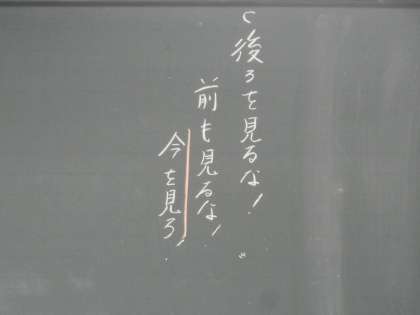 "後ろを見るな!
前も見るな!"
今を見ろ!